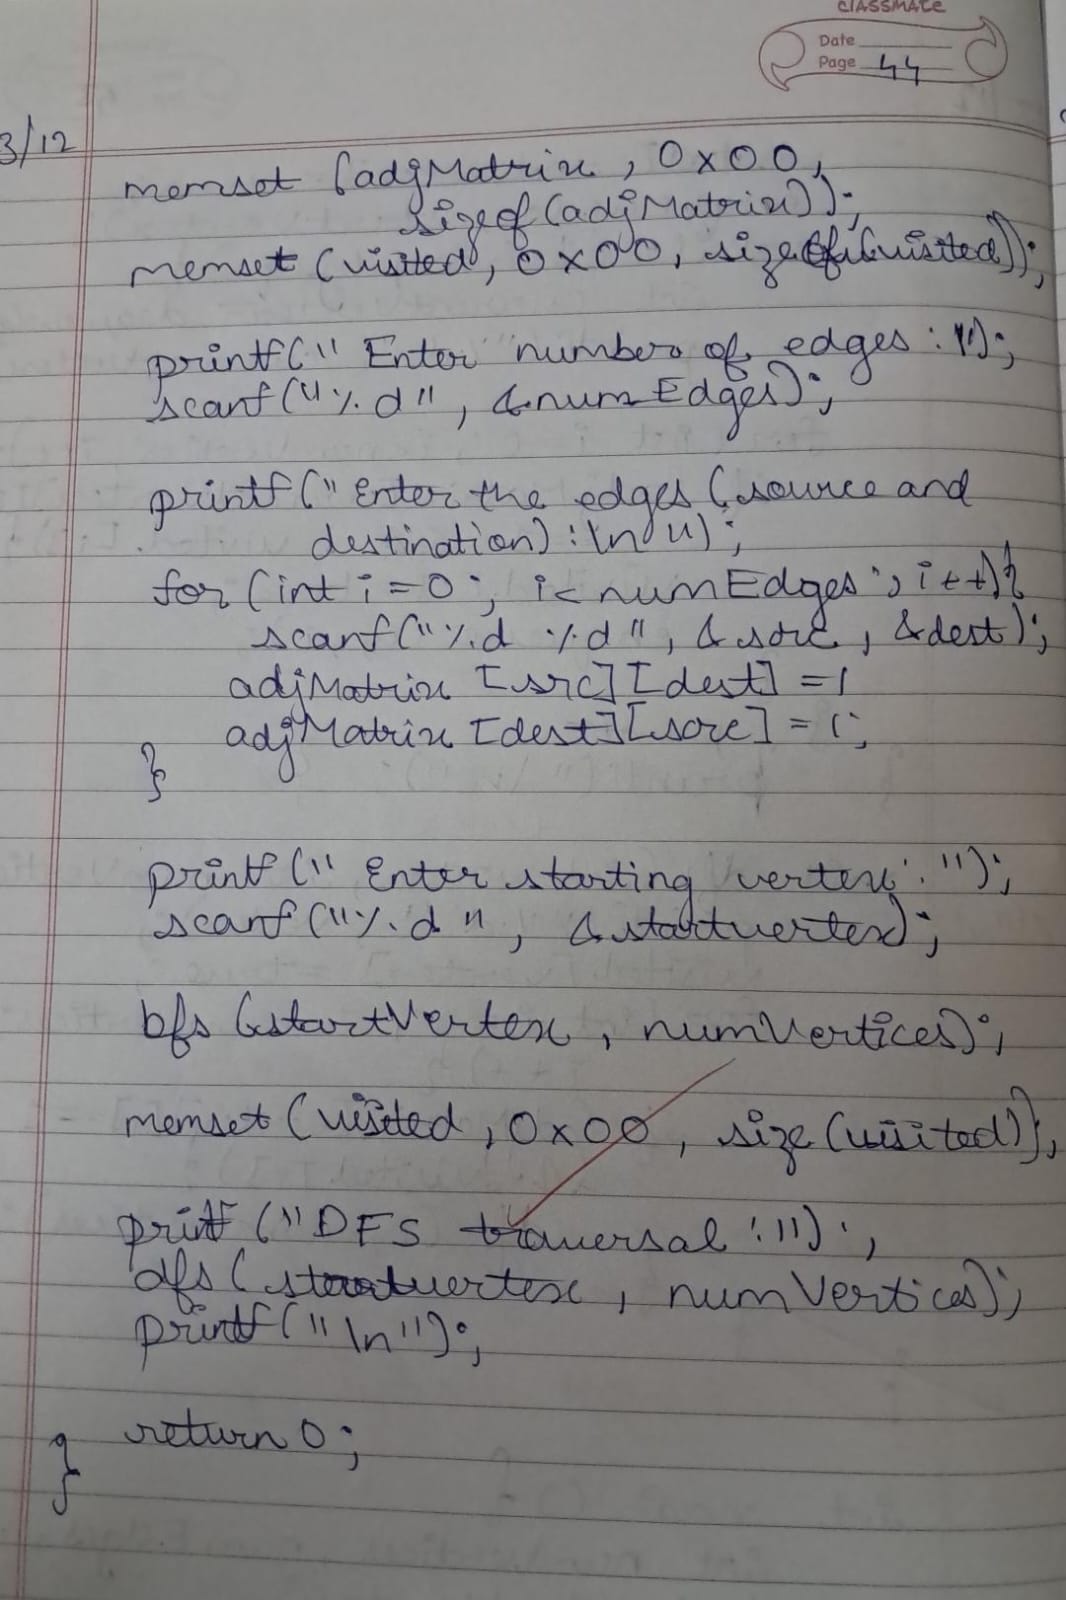 CLASSMATE
Date
Page 44
3/12
memset (adjMatrix, 0x00,
sizeof (adjMatrix));
memset (visited, 0x00, sizeof(visited));
printf(" Enter number of edges : ");
scanf("%d", &numEdges);
printf(" Enter the edges (source and
destination) : \n");
for (int i=0; i<numEdges; i++){
scanf("%d %d", &src, &dest);
adjMatrix [src][dest] = 1
adjMatrix [dest][src] = 1;
}
printf (" Enter starting vertex : ");
scanf ("%d", &startvertex);
bfs (startVertex, numVertices);
memset (visited, 0x00, size (visited));
printf ("DFS traversal : ");
dfs (startvertex, numVertices);
printf("\n");
return 0;
}